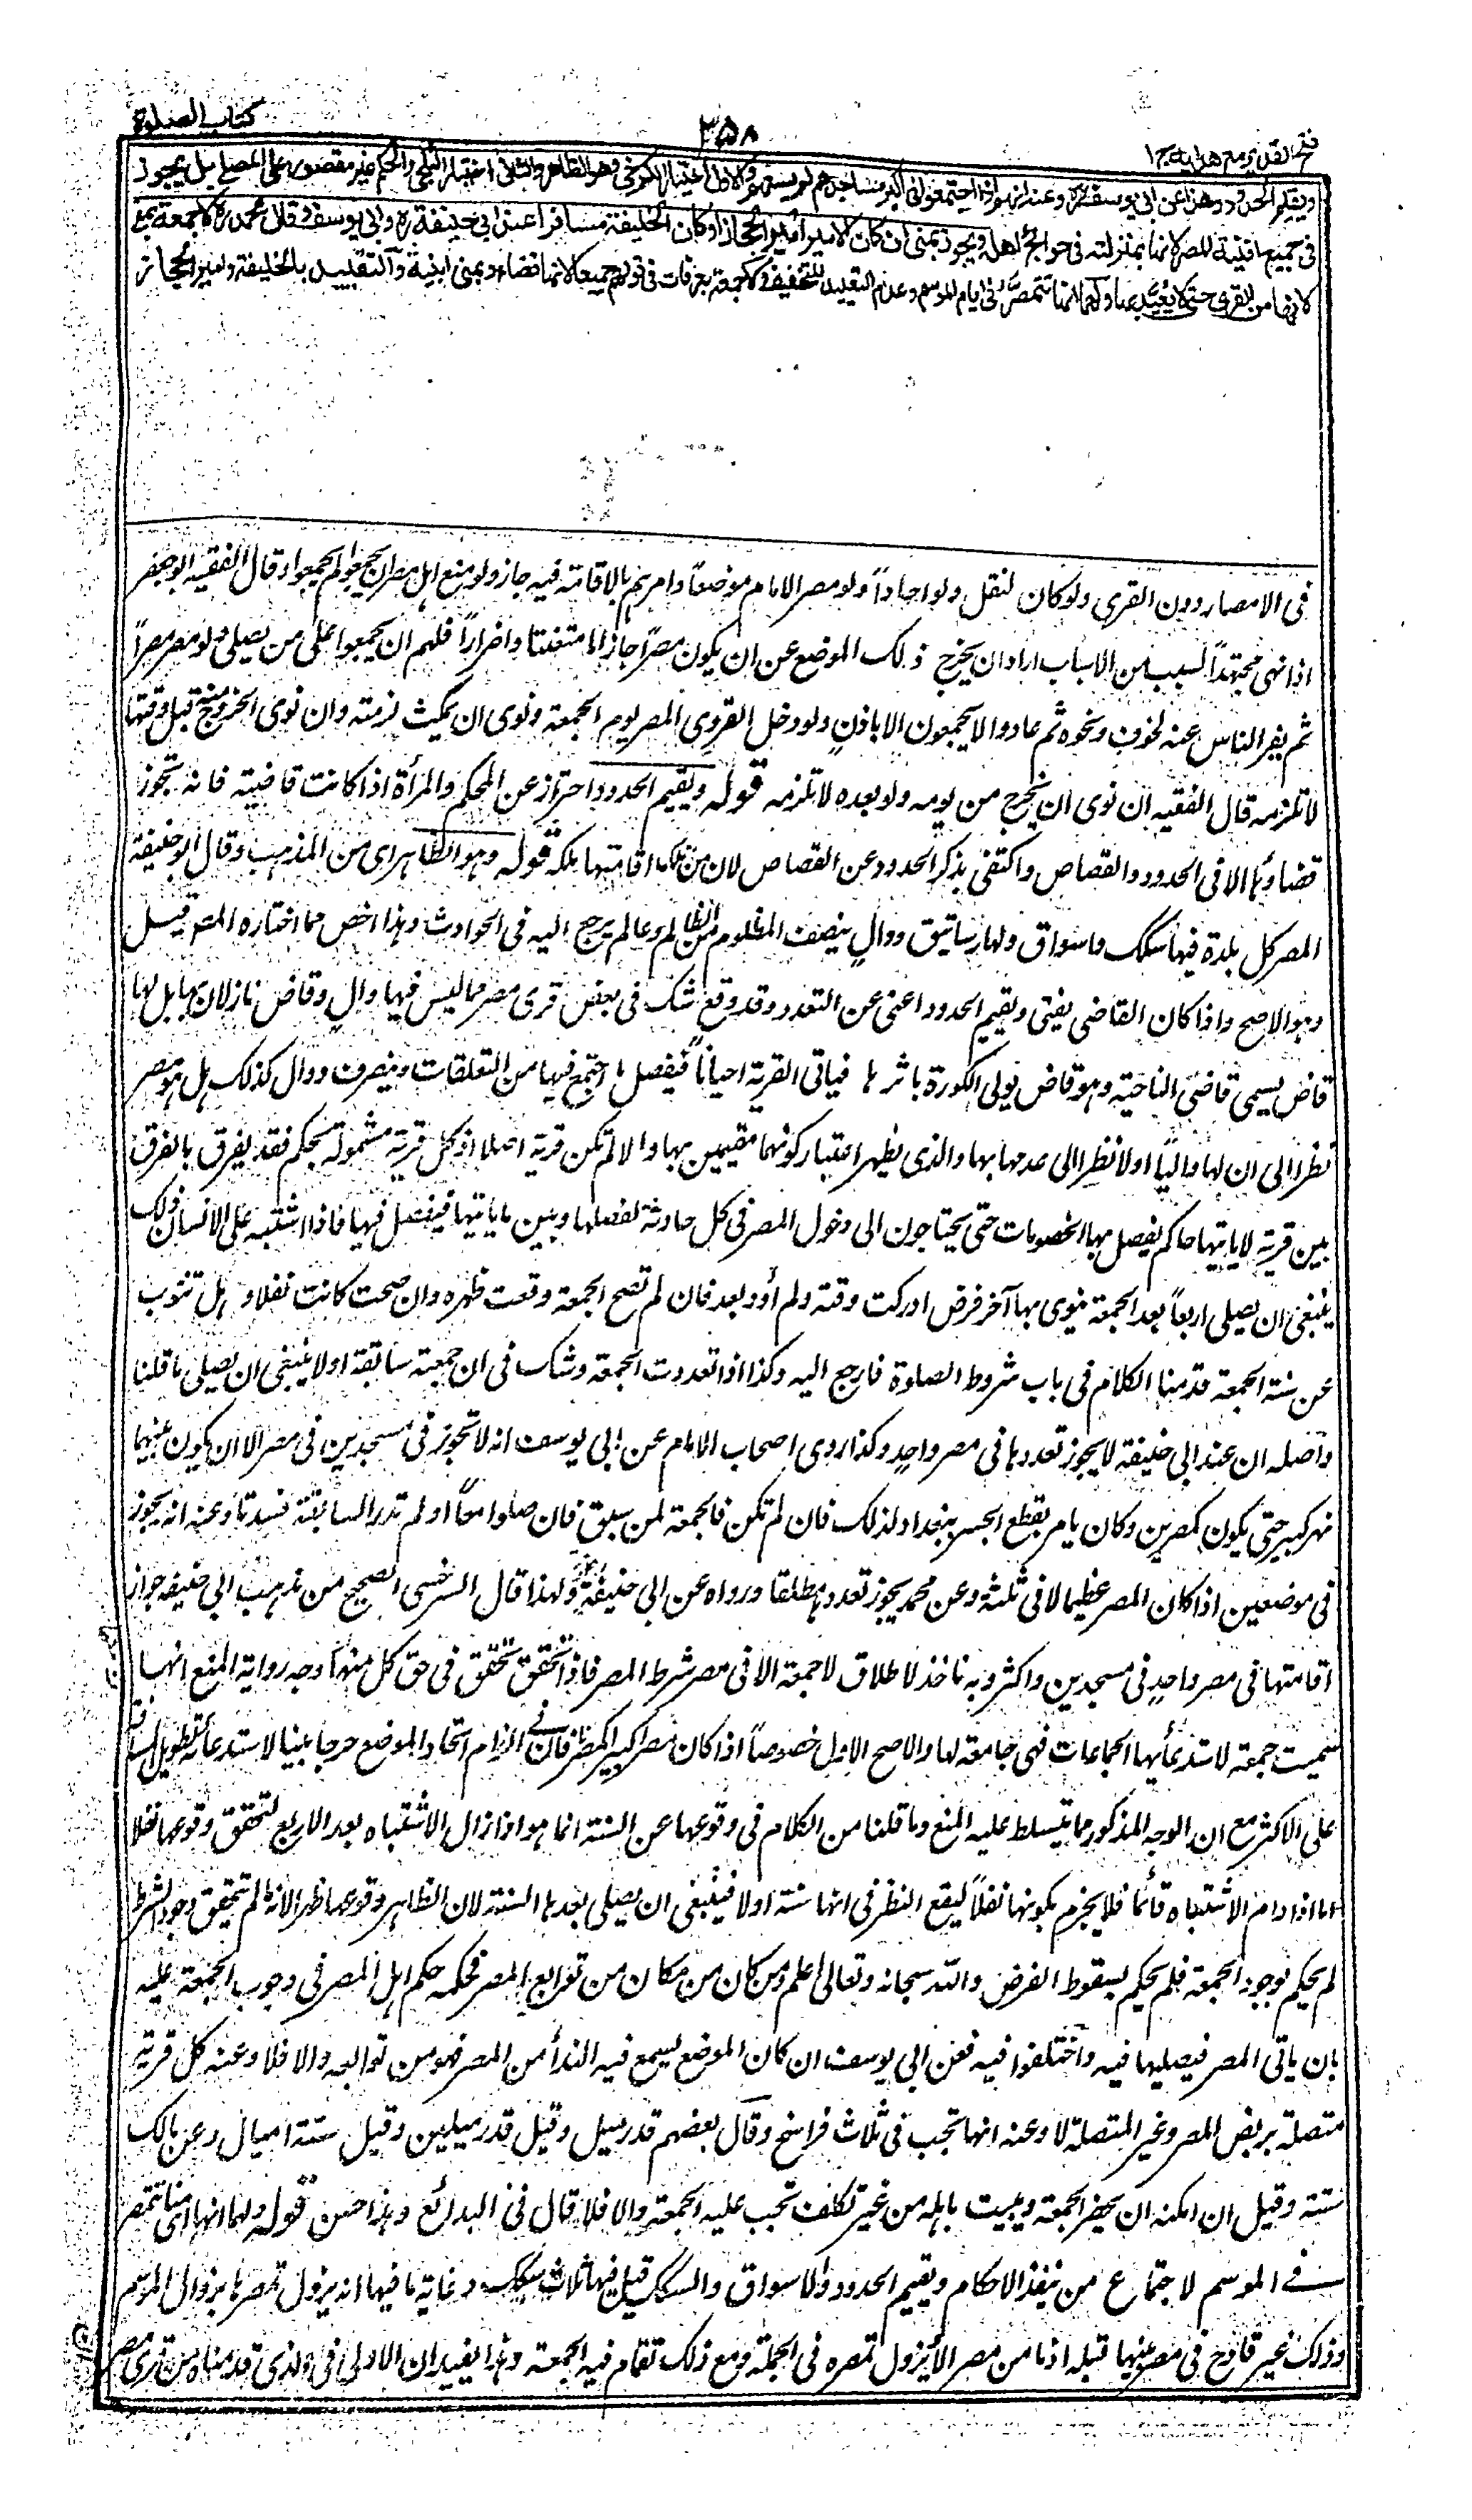 فتح القدير مع هدايه ج ١
٣٥٨
كتاب الصلوة
ويقيم الحدود وهذا عن ابي يوسف ره وعنه انهم اذا اجتمعوا في اكبر مساجدهم لم يسعهم والاول اختيار الكرخي وهو الظاهر والثاني اختيار الثلجي والحكم غير مقصور على المصلى بل يجوز
في جميع افنية المصر لانها بمنزلته في حوائج اهله ويجوز بمنى ان كان الامير امير الحجاز او كان الخليفة مسافرا عند ابي حنيفة ره وابي يوسف وقال محمد ره لا جمعة بمنى
لانها من القرى حتى لا يعيد بها ولهما انها تتمصر في ايام الموسم وعدم التعييد للتخفيف ولا جمعة بعرفات في قولهم جميعا لانها فضاء وبمنى ابنية والتقييد بالخليفة وامير الحجاز
فى الامصار دون القرى ولو كان لنقل ولو احادا ولو مصر الامام موضعا وامرهم بالاقامة فيه جاز ولو منع اهل مصر ان يجمعوا لم يجمعوا وقال الفقيه ابو جعفر
اذا نهى مجتهدا لسبب من الاسباب اراد ان يخرج ذلك الموضع عن ان يكون مصرا جاز اما متعنتا واضرارا فلهم ان يجمعوا على من يصلى ولو مصر مصرا
ثم نفر الناس عنه لخوف ونحوه ثم عادوا لا يجمعون الا باذن ولو دخل القروى المصر يوم الجمعة ونوى ان يمكث لزمته وان نوى الخروج منه قبل وقتها
لا تلزمه قال الفقيه ان نوى ان يخرج من يومه ولو بعده لا تلزمه قوله ويقيم الحدود احتراز عن المحكم والمرأة اذا كانت قاضية فانه تجوز
قضاؤها الا فى الحدود والقصاص واكتفى بذكر الحدود عن القصاص لان من ملك اقامتها ملكه قوله وهو الظاهر اى من المذهب وقال ابو حنيفة
المصر كل بلدة فيها سكك واسواق ولها رساتيق ووال ينصف المظلوم من الظالم وعالم يرجع اليه فى الحوادث وهذا اخص مما اختاره المص قيل
وهو الاصح واذا كان القاضى يفتى ويقيم الحدود اغنى عن التعدد وقد وقع شك فى بعض قرى مصر مما ليس فيها وال وقاض نازلان بها بل لها
قاض يسمى قاضى الناحية وهو قاض يولى الكورة باسرها فياتى القرية احيانا فيفصل ما اجتمع فيها من التعلقات وينصرف ووال كذلك هل هو مصر
نظرا الى ان لها واليا او لا نظرا الى عدمها بها والذى يظهر اعتبار كونهما مقيمين بها والا لم تكن قرية اصلا اذ كل قرية مشمولة بحكم فقد يفرق بالفرق
بين قرية لا ياتيها حاكم يفصل بها الخصومات حتى يحتاجون الى دخول المصر فى كل حادثة لفصلها وبين ما ياتيها فيفصل فيها فاذا اشتبه على الانسان ذلك
ينبغى ان يصلى اربعا بعد الجمعة ينوى بها آخر فرض ادركت وقته ولم أؤد بعد فان لم تصح الجمعة وقعت ظهره وان صحت كانت نفلا وهل تنوب
عن سنة الجمعة قدمنا الكلام فى باب شروط الصلوة فارجع اليه وكذا اذا تعددت الجمعة وشك فى ان جمعته سابقة اولا ينبغى ان يصلى ما قلنا
واصله ان عند ابى حنيفة لا يجوز تعددها فى مصر واحد وكذا روى اصحاب الامام عن ابى يوسف انه لا تجوز فى مسجدين فى مصر الا ان يكون بينهما
نهر كبير حتى يكون كمصرين وكان يامر بقطع الجسر ببغداد لذلك فان لم تكن فالجمعة لمن سبق فان صلوا معا او لم تدر السابقة فسدتا وعنه انه يجوز
فى موضعين اذا كان المصر عظيما لا فى ثلثة وعن محمد يجوز تعددها مطلقا ورواه عن ابى حنيفة ولهذا قال السرخسى الصحيح من مذهب ابى حنيفة جواز
اقامتها فى مصر واحد فى مسجدين واكثر وبه ناخذ لاطلاق لا جمعة الا فى مصر شرط المصر فاذا تحقق تحقق فى حق كل منهما وجه رواية المنع انها
سميت جمعة لاستدعائها الجماعات فهى جامعة لها والاصح الاول خصوصا اذا كان مصر كبير كمصرنا فان فى الزام اتحاد الموضع حرجا بينا لاستدعائه تطويل المسافة
على الاكثر مع ان الوجه المذكور مما يتسلط عليه المنع وما قلنا من الكلام فى وقوعها عن السنة انما هو اذا زال الاشتباه بعد الاربع لتحقق وقوعها نفلا
اما اذا دام الاشتباه قائما فلا يجزم بكونها نفلا ليقع النظر فى انها سنة اولا فينبغى ان يصلى بعدها السنة لان الظاهر وقوعها ظهرا لانه ما لم يتحقق وجود الشرط
لم يحكم بوجود الجمعة فلم يحكم بسقوط الفرض والله سبحانه وتعالى اعلم ومن كان من مكان من توابع المصر فحكمه حكم اهل المصر فى وجوب الجمعة عليه
بان ياتى المصر فيصليها فيه واختلفوا فيه فعن ابى يوسف ان كان الموضع يسمع فيه النداء من المصر فهو من توابعه والا فلا وعنه كل قرية
متصلة بربض المصر وغير المتصلة لا وعنه انها تجب فى ثلاث فراسخ وقال بعضهم قدر ميل وقيل قدر ميلين وقيل ستة اميال وعن مالك
ستة وقيل ان امكنه ان يحضر الجمعة ويبيت باهله من غير تكلف تجب عليه الجمعة والا فلا قال فى البدائع وهذا حسن قوله ولهما انها اى منى تتمصر
فى الموسم لاجتماع من ينفذ الاحكام ويقيم الحدود والاسواق والسكك قيل فيها ثلاث سكك وغاية ما فيها انه يزول تمصرها بزوال الموسم
وذلك غير قادح فى مصريتها قبله اذ ما من مصر الا يزول تمصره فى الجملة ومع ذلك تقام فيه الجمعة وهذا يفيد ان الاولى فى الذى قدمناه من قرى مصر